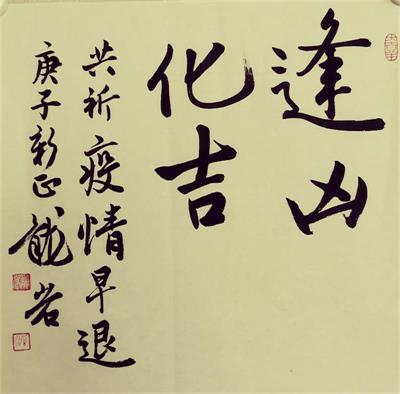 逢凶
化吉
共祈疫情早退
庚子新正龙岩